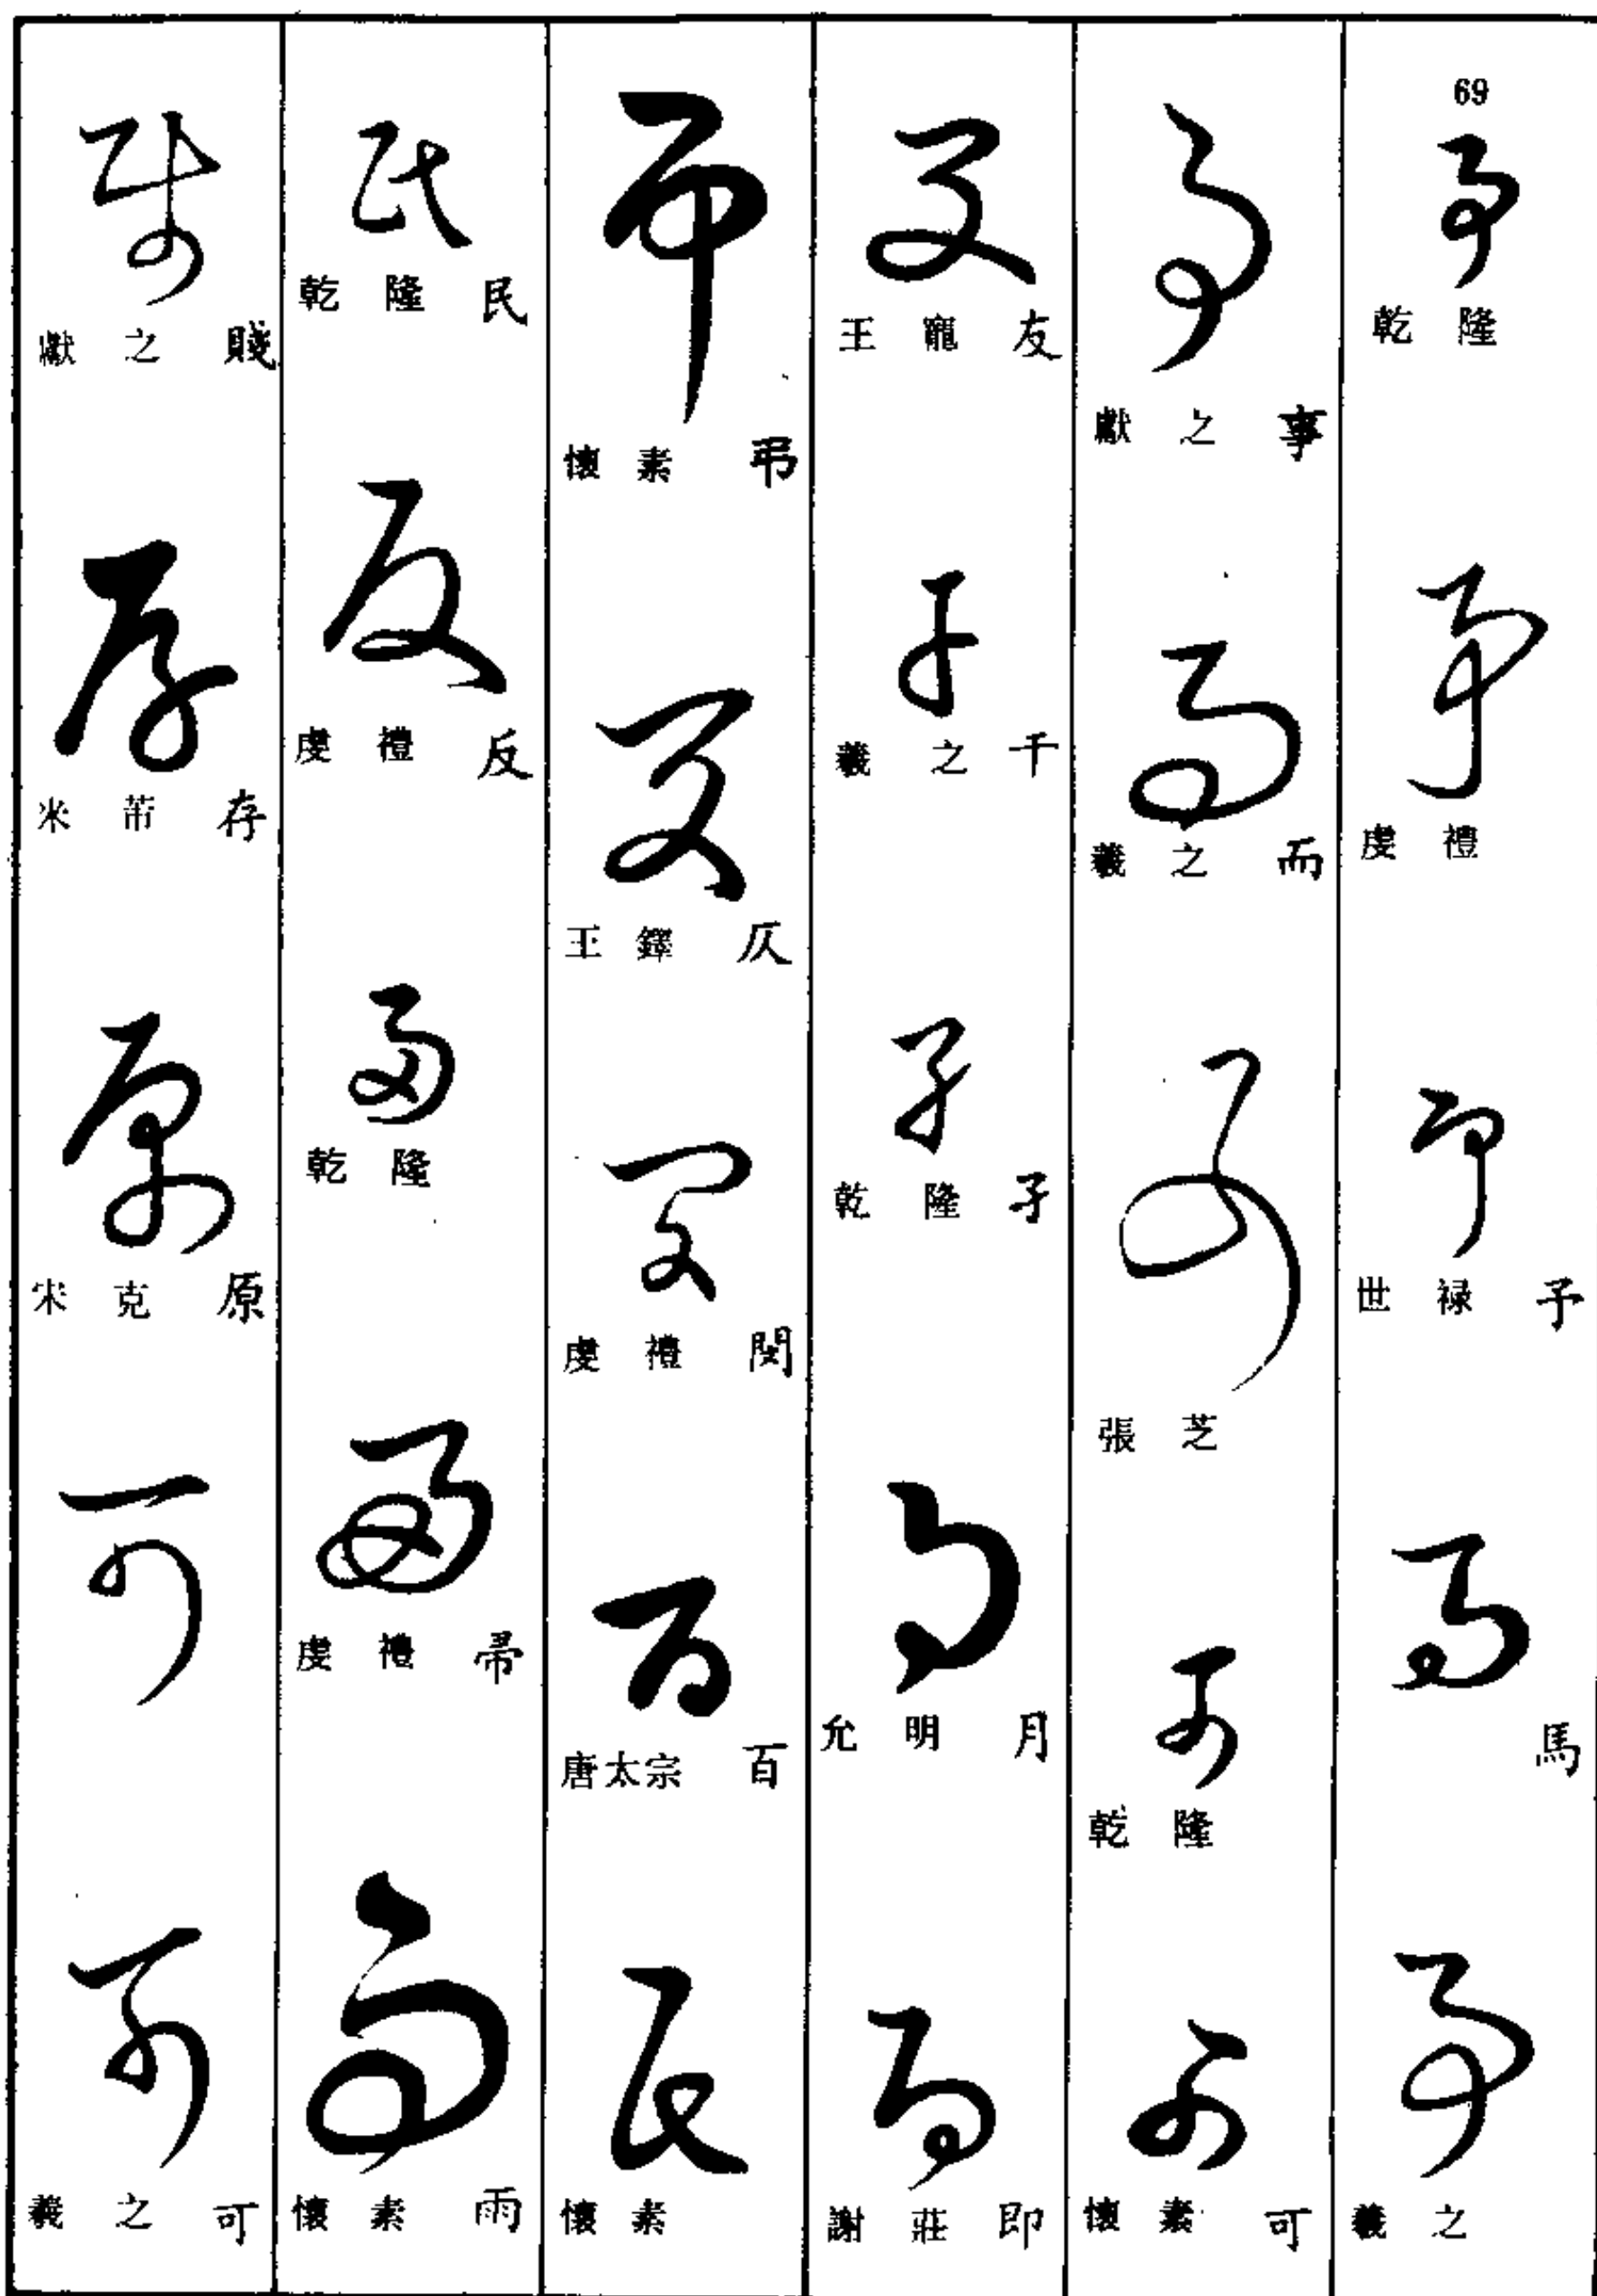 69
乾隆
虔禮
世禄 予
馬
羲之
獻之 事
羲之 而
張芝
乾隆
懷素 可
王寵 友
羲之 千
乾隆 孑
允明 月
謝莊 即
懷素 弔
王鐸 仄
虔禮 閔
唐太宗 百
懷素
乾隆 民
虔禮 反
乾隆
虔禮 帚
懷素 雨
獻之 賤
米芾 存
宋克 原
羲之 可